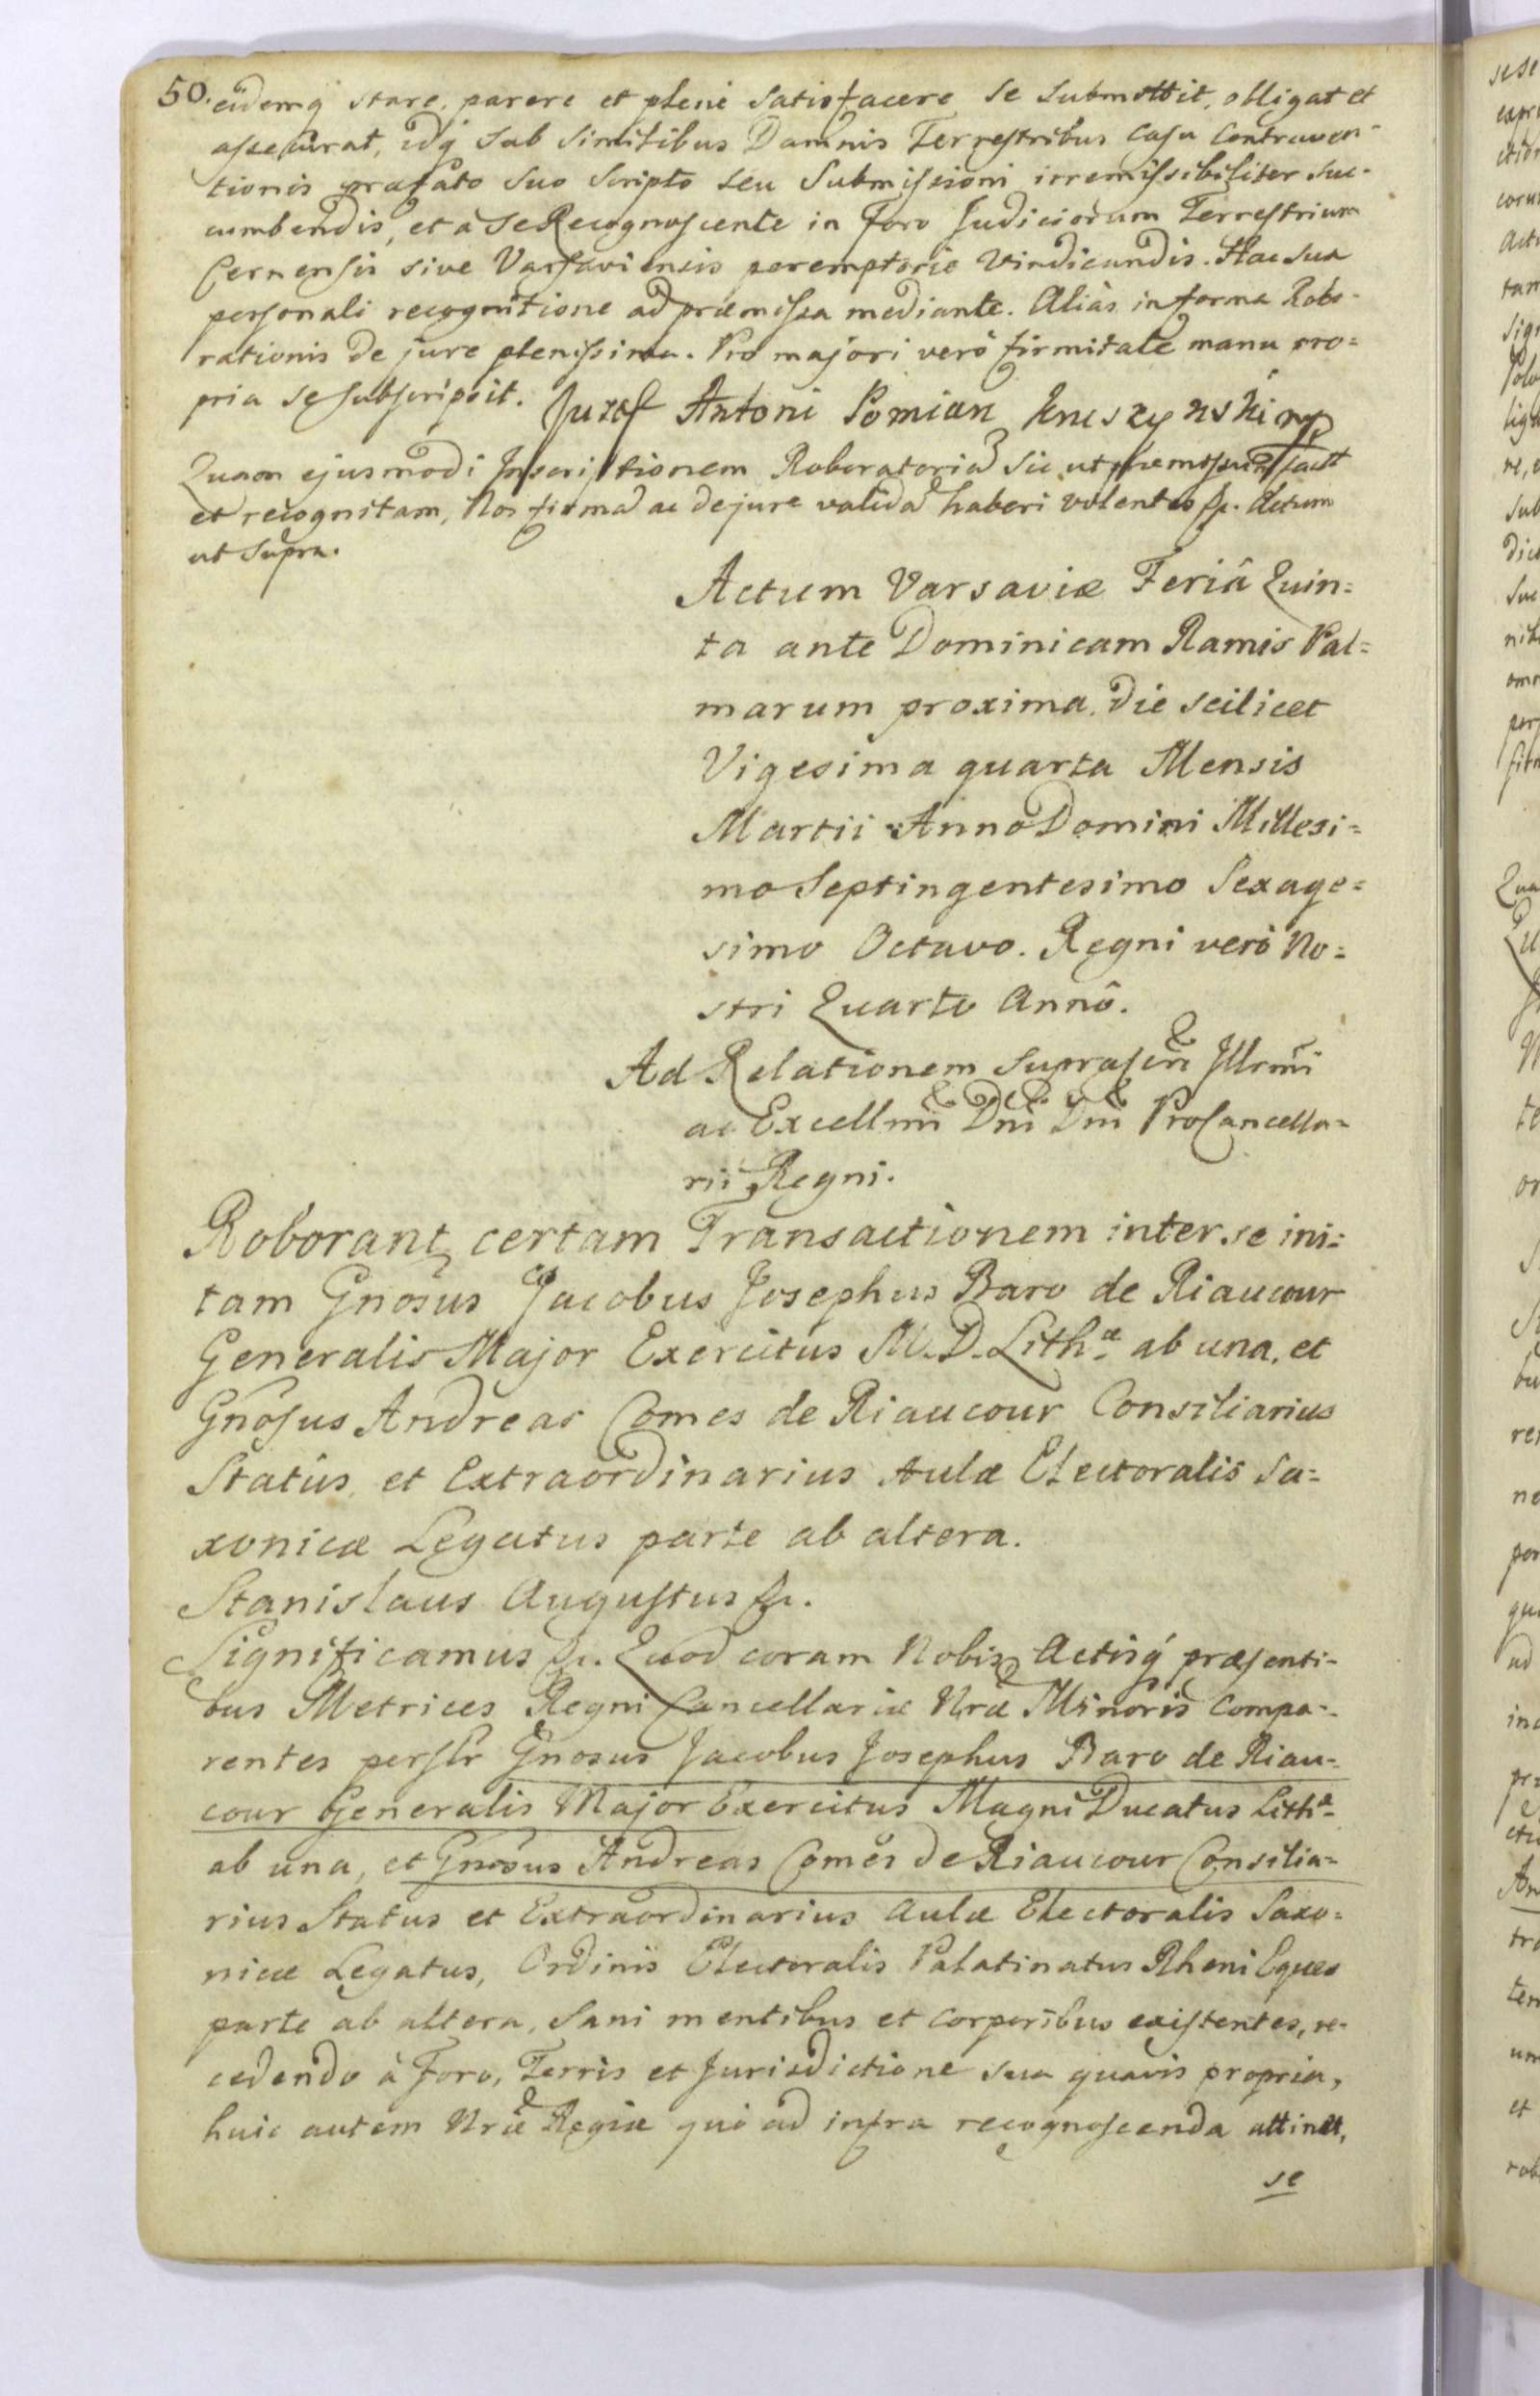 50. eidemq stare, parere et plene satisfacere se submittit, obligat et
assecurat, idq sub similibus Damnis Terrestribus casu contraven-
tionis præfato suo scripto seu submissioni irremissibiliter suc-
cumbendis, et a se Recognoscente in foro Judiciorum Terrestrium
Cernensis sive Varsaviensis peremptorie vindicandis. Hac sua
personali recognitione ad præmissa mediante. Aliàs in forma Robo-
rationis de jure plenissima. Pro majori verò firmitate manu pro=
pria se subscripsit. Juzef Antoni Pomian Kruszynski mp
Quam ejusmodi Inscriptionem Roboratoriã sic ut præmissum fact
et recognitam, Nos firmã ac de jure validã haberi volentes &c. Actum
ut supra.
Actum Varsaviæ Feriâ Quin=
ta ante Dominicam Ramis Pal=
marum proxima. Die scilicet
Vigesima quarta Mensis
Martii Anno Domini Millesi=
mo Septingentesimo Sexage=
simo Octavo. Regni verò No=
stri Quarto Annô.
Ad Relationem suprascrti Illrmi
ac Excellmi Dni Dni ProCancella=
rii Regni.
Roborant certam Transactionem inter se ini=
tam Gnosus Jacobus Josephus Baro de Riaucour
Generalis Major Exercitus M. D. Lithæ ab una, et
Gnosus Andreas Comes de Riaucour Consiliarius
Statûs, et Extraordinarius Aulæ Electoralis Sa=
xonicæ Legatus parte ab altera.
Stanislaus Augustus &c.
Significamus &c. Quod coram Nobis Actisq præsenti-
bus Metrices Regni Cancellariæ Nræ Minoris compa-
rentes persltr Gnosus Jacobus Josephus Baro de Riau-
cour Generalis Major Exercitus Magni Ducatus Lithæ
ab una, et Gnosus Andreas Comes de Riaucour Consilia=
rius Status et Extraordinarius Aulæ Electoralis Saxo=
nicæ Legatus, Ordinis Electoralis Palatinatus Rheni Eques
parte ab altera, sani mentibus et corporibus existentes, re-
cedendo à Foro, Terris et Jurisdictione sua quavis propria,
huic autem Nræ Regiæ quò ad infra recognoscenda attinet,
se